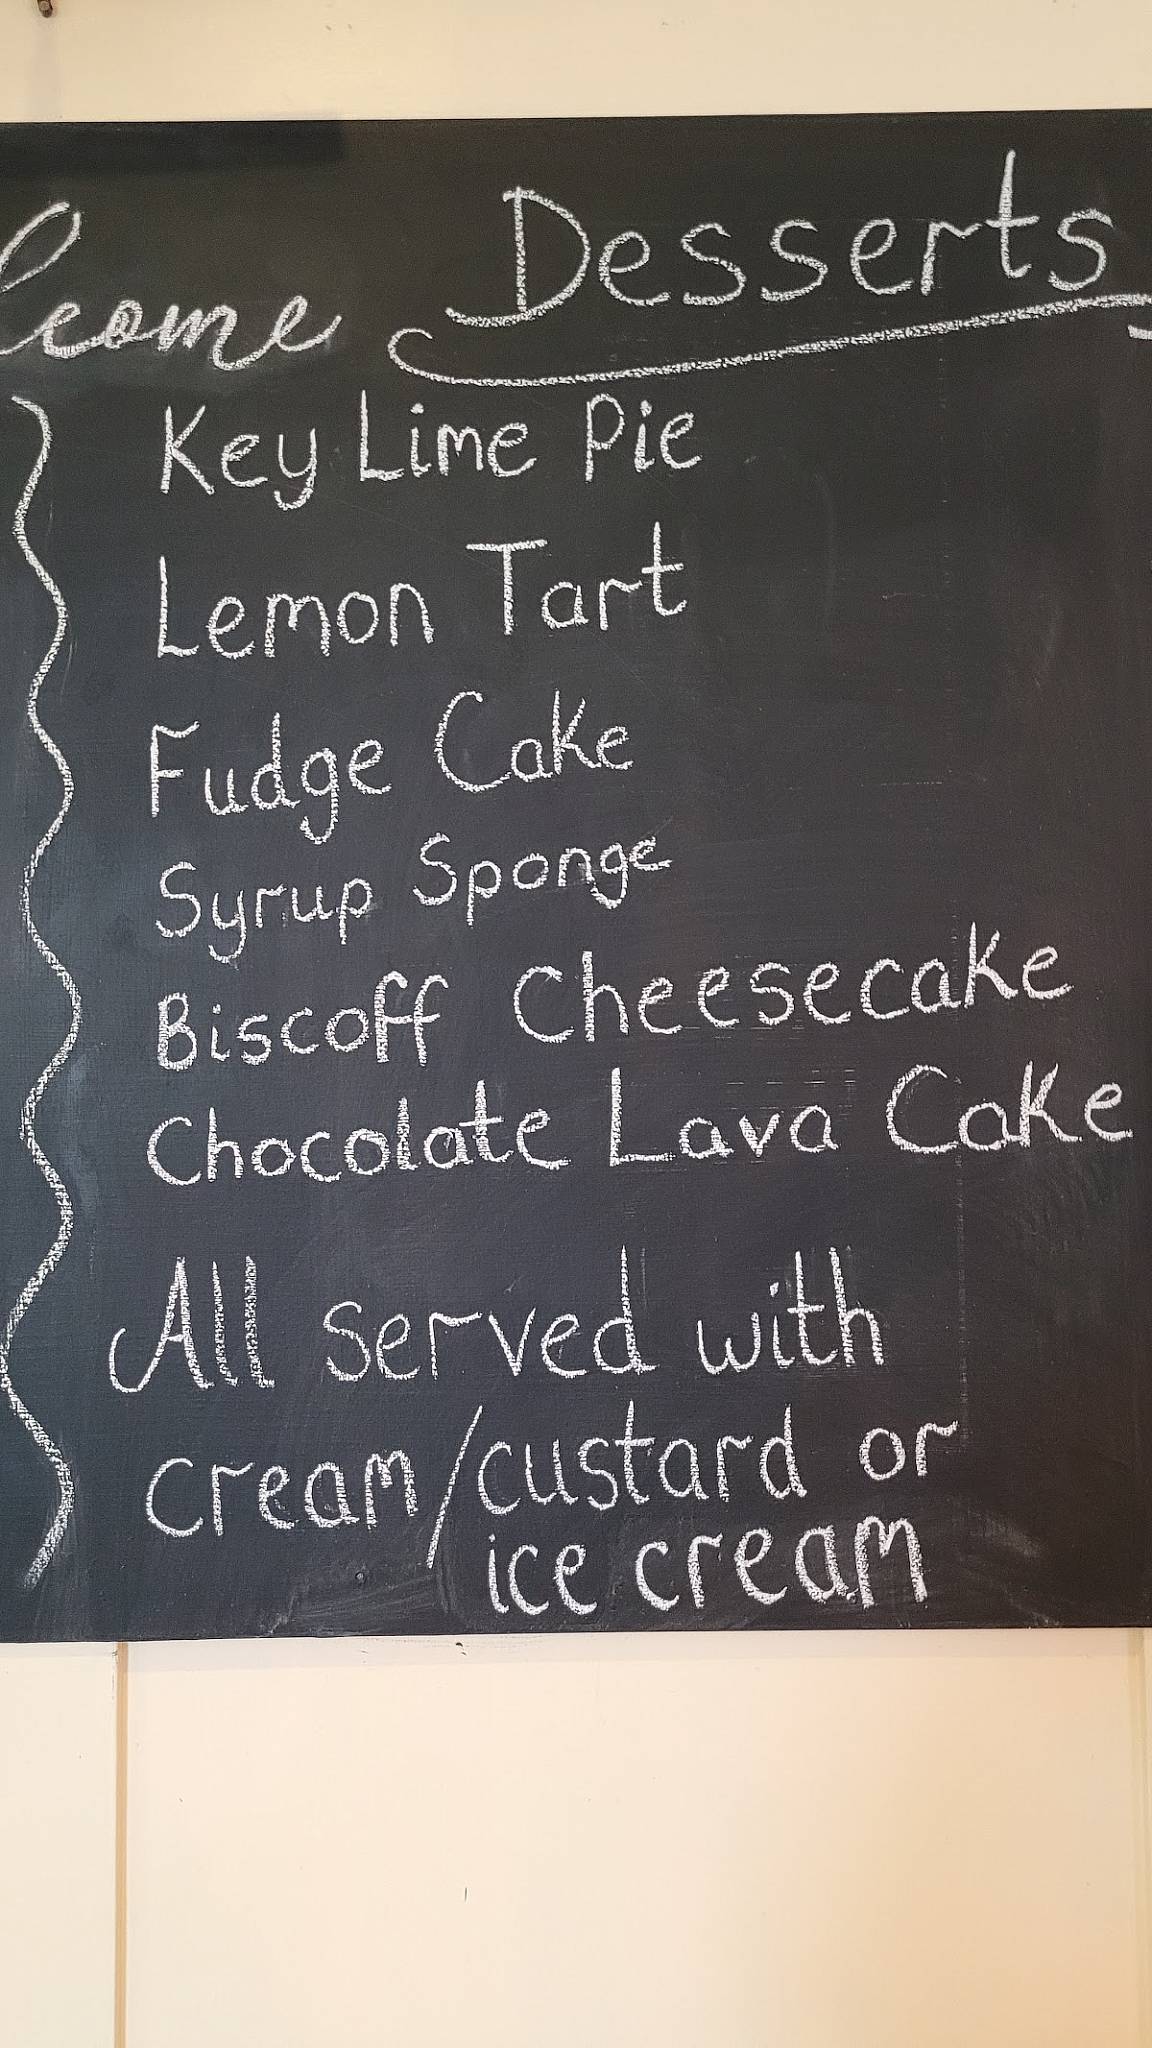 Desserts
lcome
Key Lime Pie
Lemon Tart
Fudge Cake
Syrup Sponge
Biscoff Cheesecake
Chocolate Lava Cake
All served with
cream/custard or
ice cream